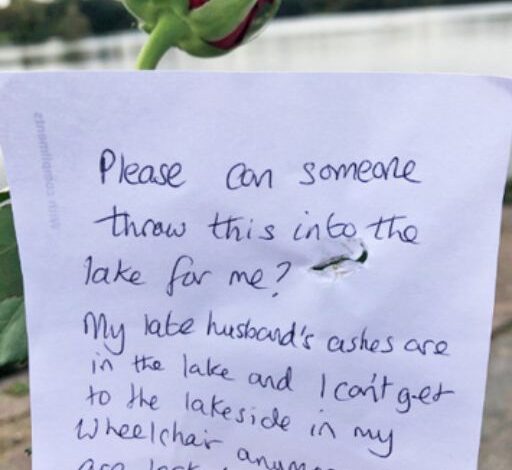 Please can someone
throw this into the
lake for me?
My late husband's ashes are
in the lake and I can't get
to the lakeside in my
Wheelchair
with compliments